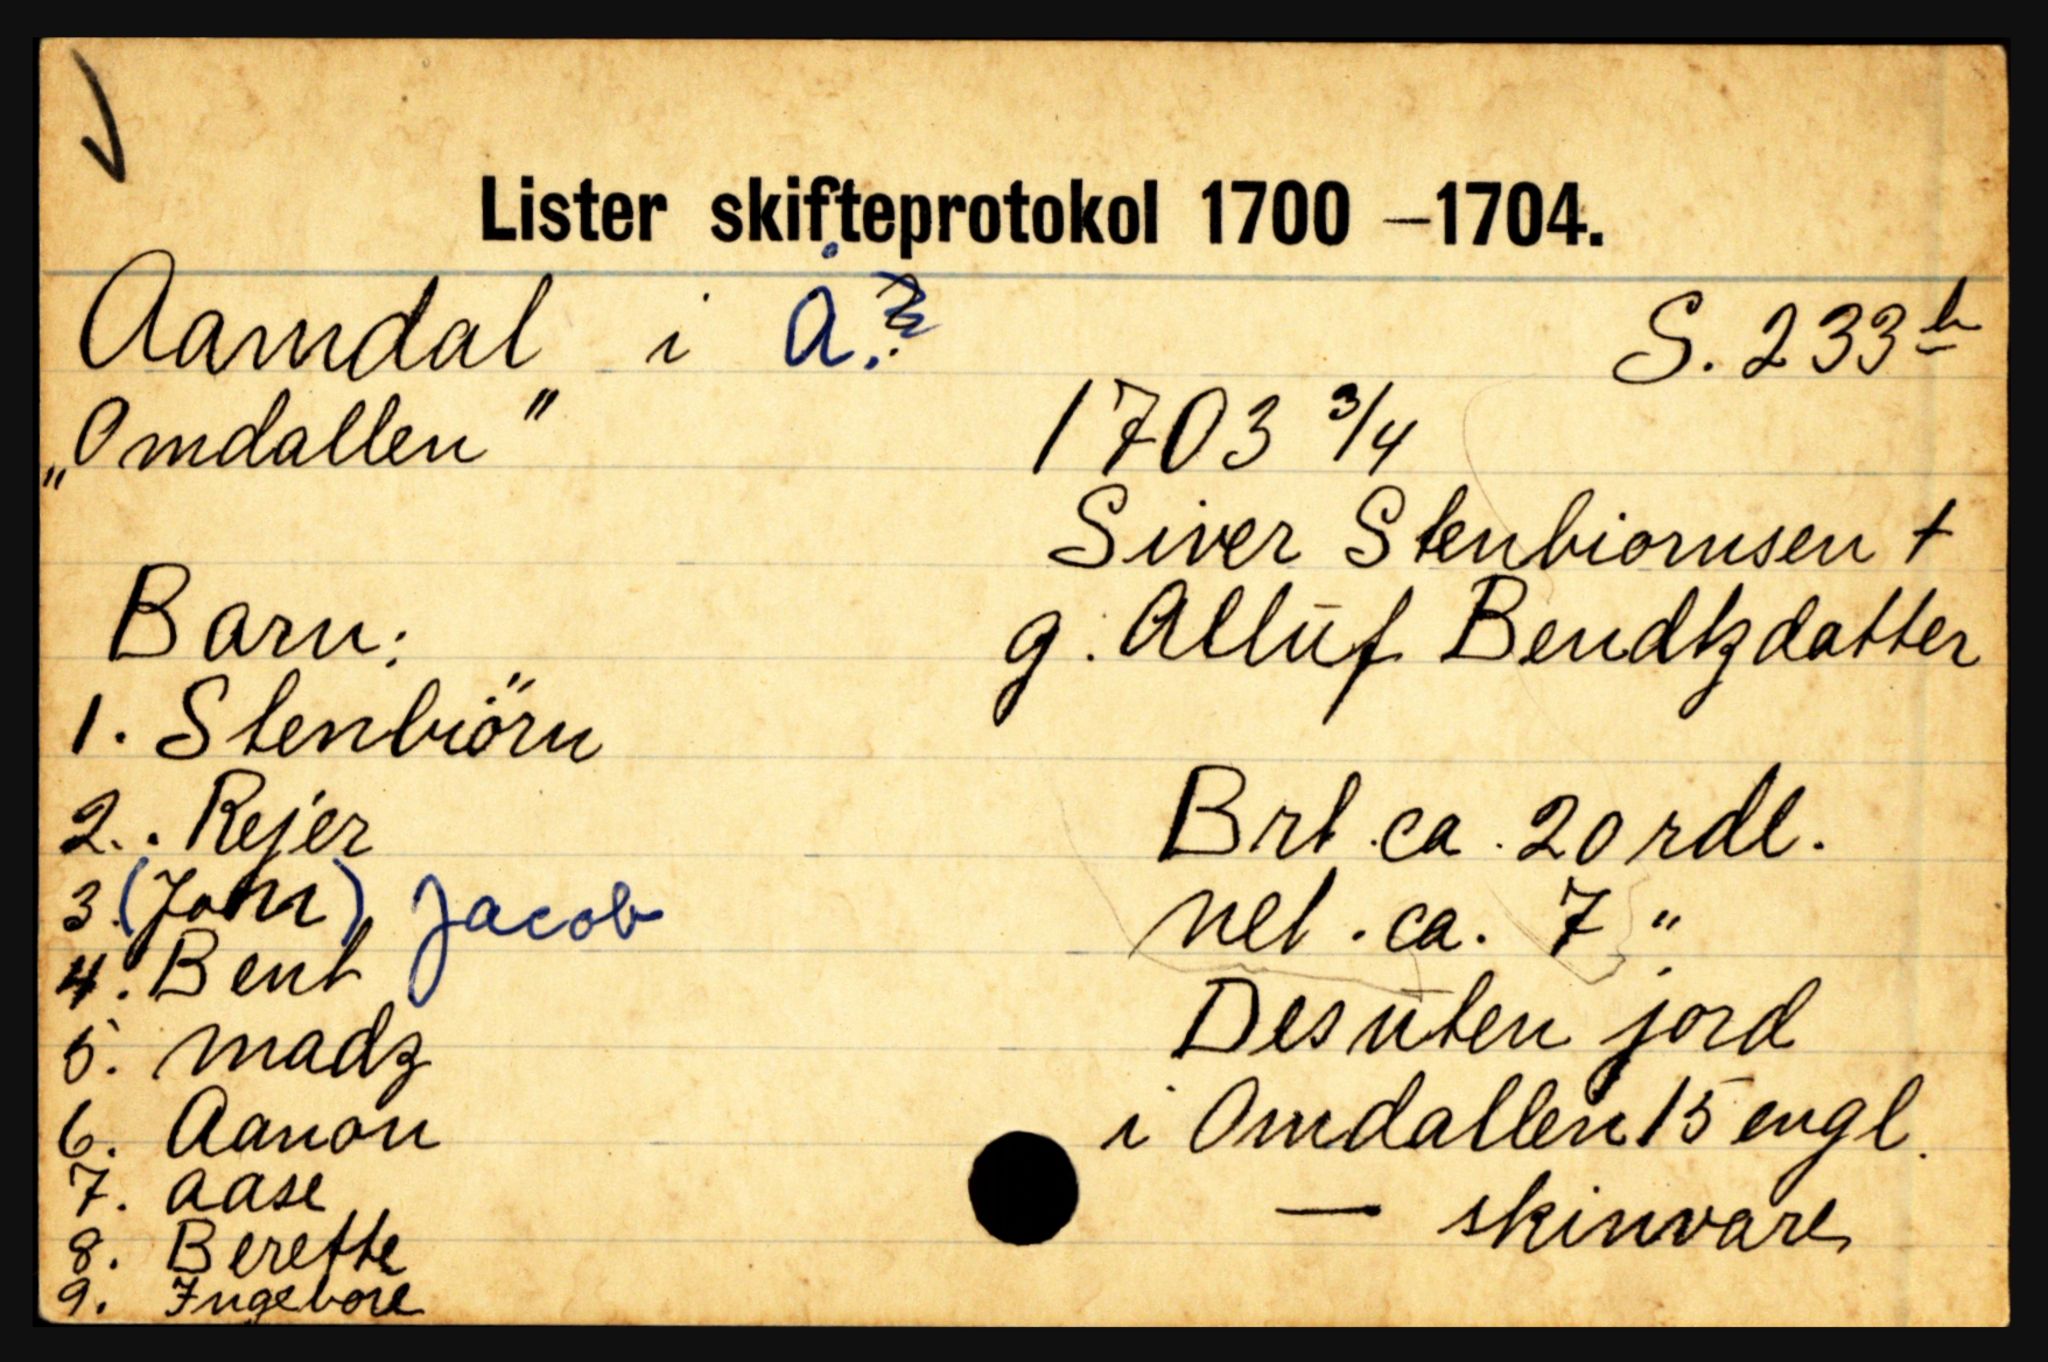 Lister skifteprotokol 1700 –1704.
Aamdal i Å. S. 233 b
„Omdallen" 1703 3/4
Siver Stenbiornsen †
Barn: g. Allūf Bendtzdatter
1. Stenbiörn
2. Rejer Brt. ca. 20 rdl.
3. (John) Jacob net. ca. 7 "
4. Bent Desūten jord
5. Madz i Omdallen 15 engl.
6. Aanon — skinvare
7. Aase
8. Berette
9. Ingebore